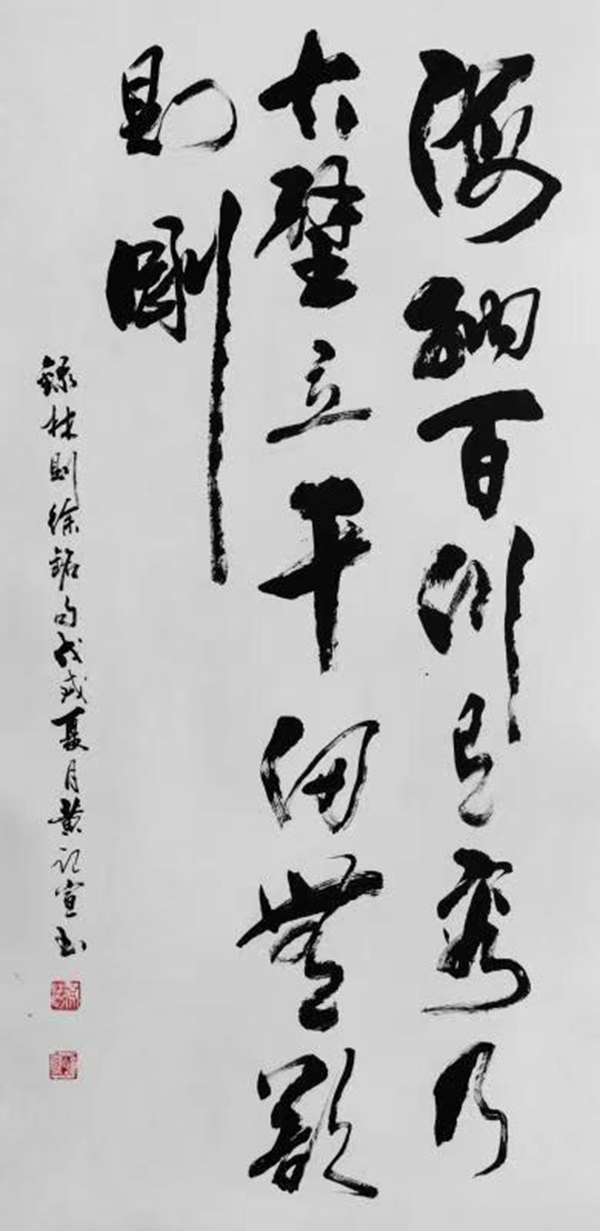 海納百川有容乃
大壁立千仞無欲
則剛
錄林則徐銘句戊戌夏月黄记宣书